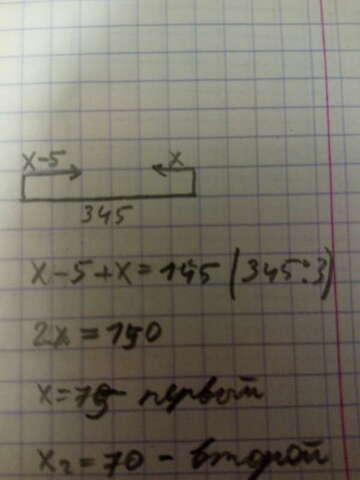 x-5 x
345
x-5+x=145 (345:3)
2x=150
x=75- первый
x₂=70 - второй